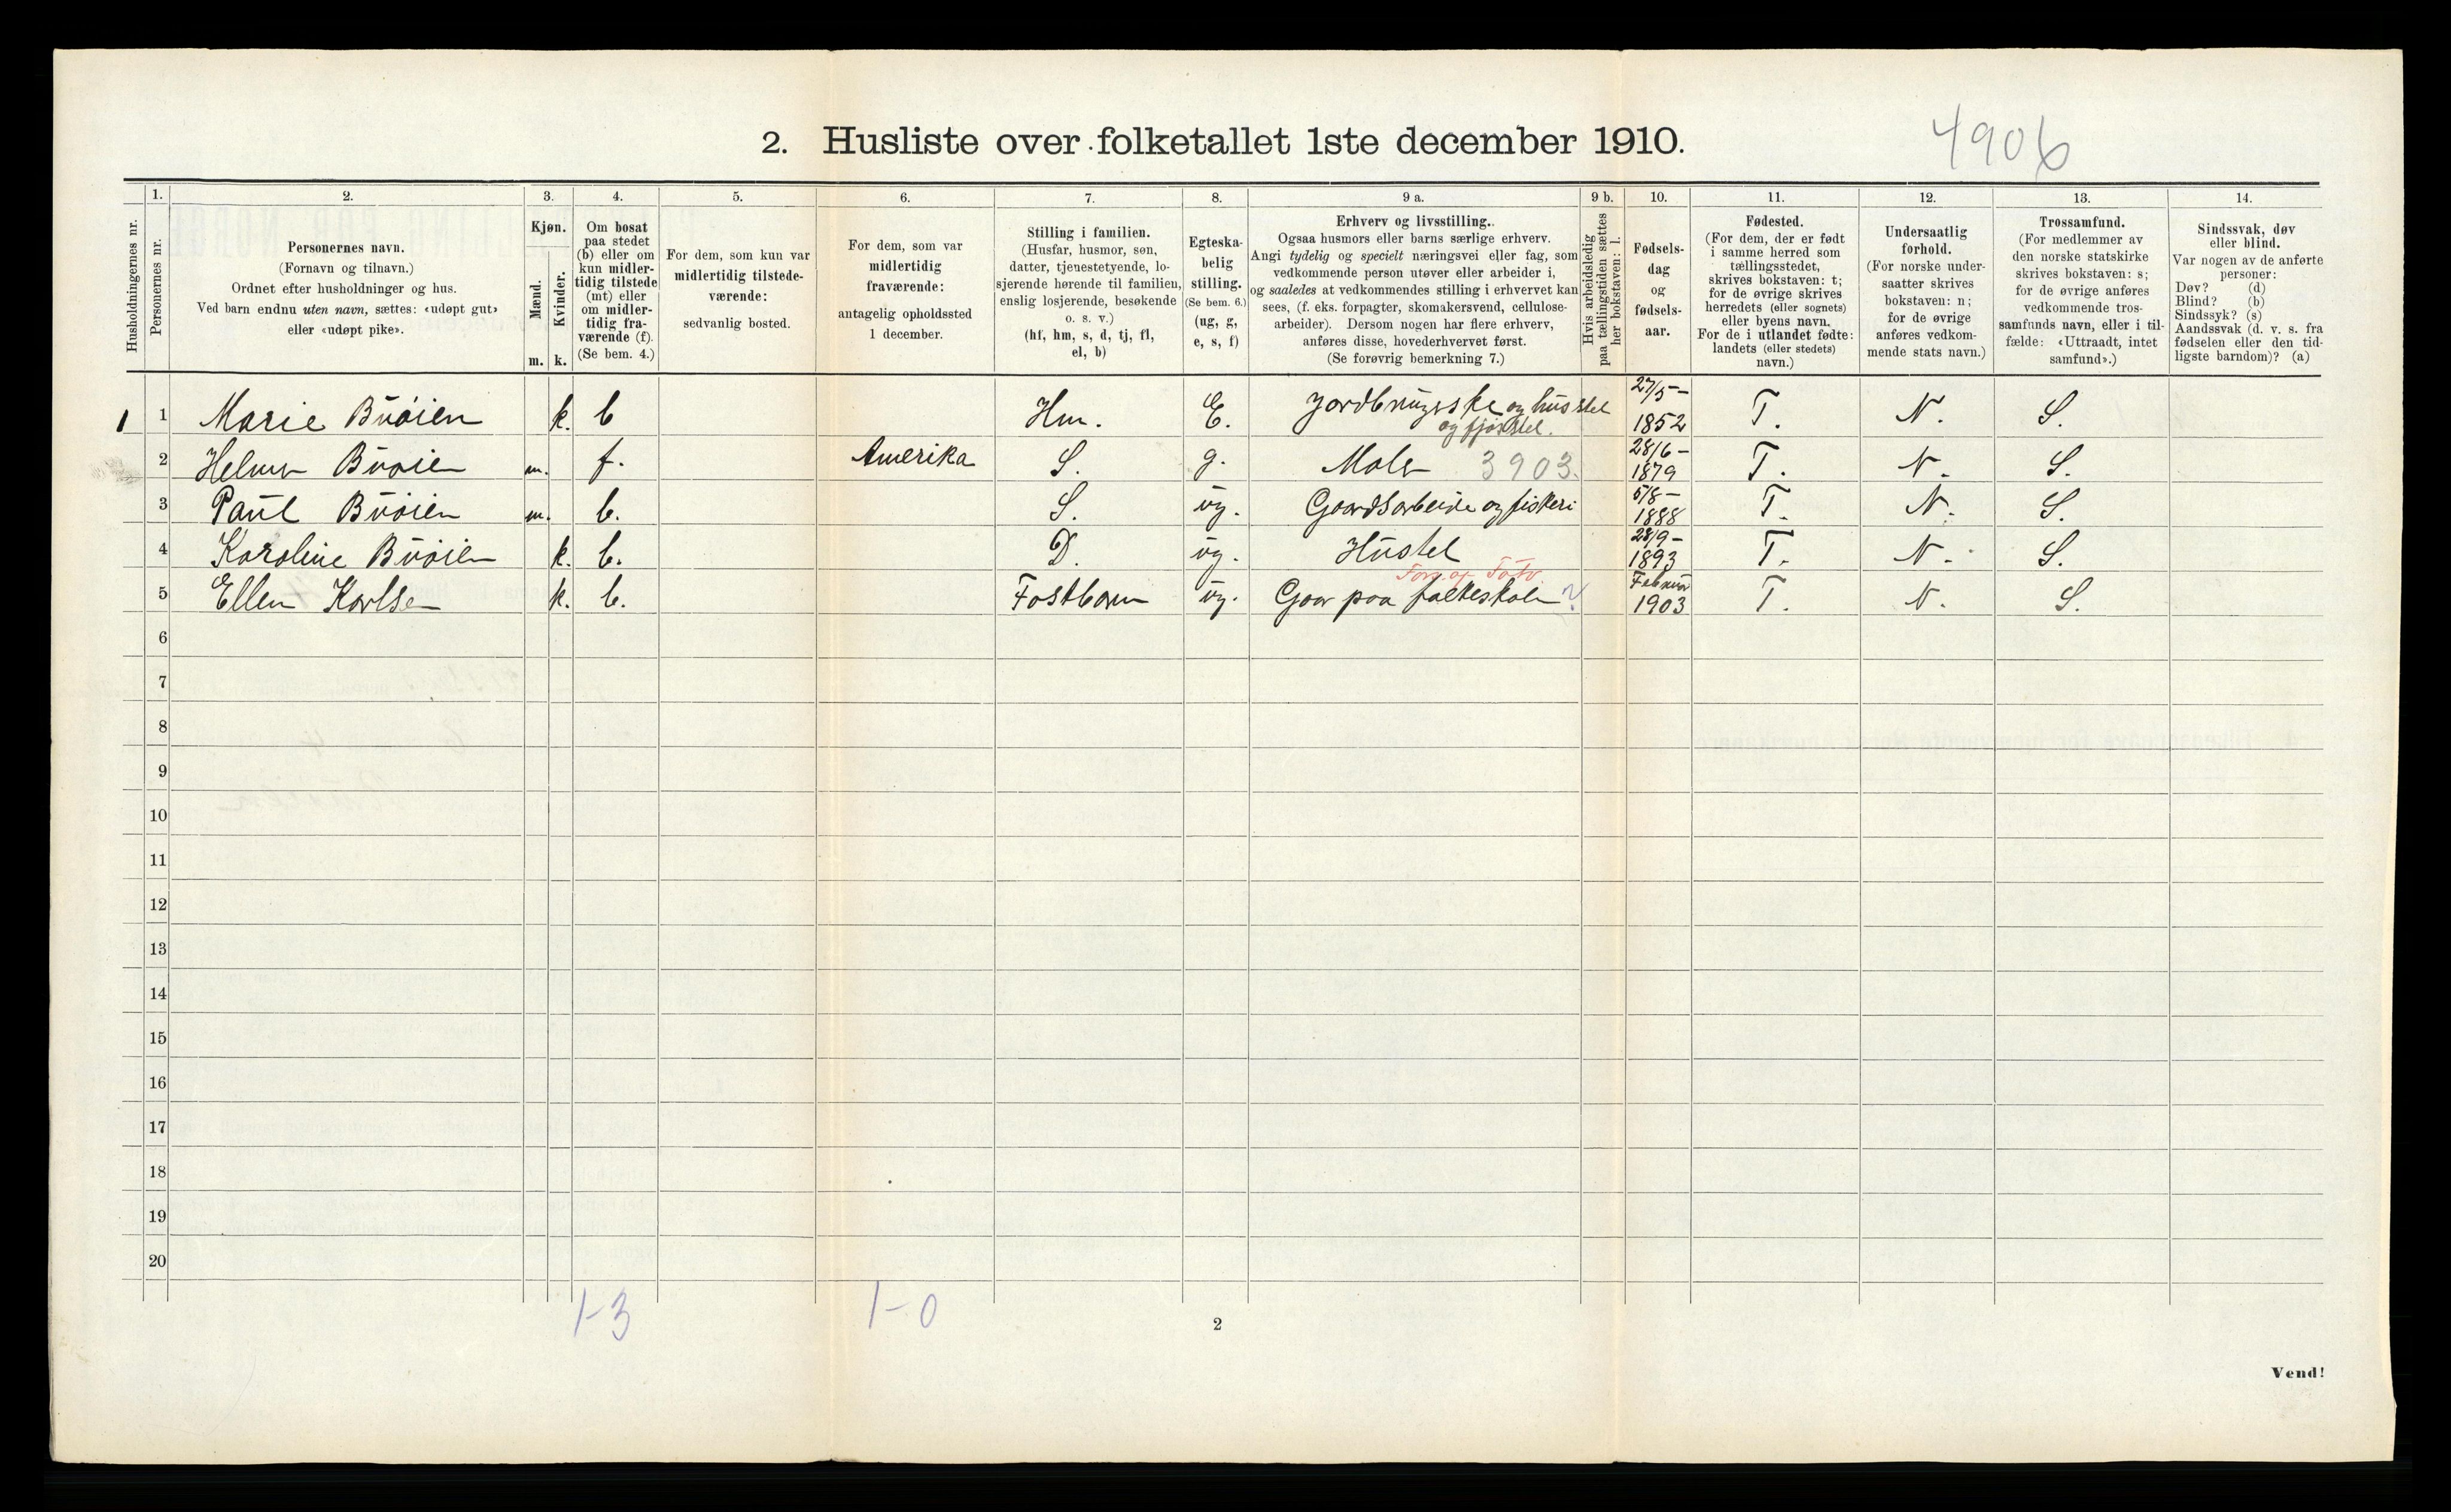 2. Husliste over folketallet 1ste december 1910.
4906
Husholdningernes nr.
1.
Personernes nr.
2.
Personernes navn.
(Fornavn og tilnavn.)
Ordnet efter husholdninger og hus.
Ved barn endnu uten navn, sættes: «udøpt gut»
eller «udøpt pike».
3.
Kjøn.
Mænd.
Kvinder.
m. k.
4.
Om bosat
paa stedet
(b) eller om
kun midler-
tidig tilstede
(mt) eller
om midler-
tidig fra-
værende (f).
(Se bem. 4.)
5.
For dem, som kun var
midlertidig tilstede-
værende:
sedvanlig bosted.
6.
For dem, som var
midlertidig
fraværende:
antagelig opholdssted
1 december.
7.
Stilling i familien.
(Husfar, husmor, søn,
datter, tjenestetyende, lo-
sjerende hørende til familien,
enslig losjerende, besøkende
o. s. v.)
(hf, hm, s, d, tj, fl,
el, b)
8.
Egteska-
belig
stilling.
(Se bem. 6.)
(ug, g,
e, s, f)
9 a.
Erhverv og livsstilling.
Ogsaa husmors eller barns særlige erhverv.
Angi tydelig og specielt næringsvei eller fag, som
vedkommende person utøver eller arbeider i,
og saaledes at vedkommendes stilling i erhvervet kan
sees, (f. eks. forpagter, skomakersvend, cellulose-
arbeider). Dersom nogen har flere erhverv,
anføres disse, hovederhvervet først.
(Se forøvrig bemerkning 7.)
9 b.
Hvis arbeidsledig
paa tællingstiden sættes
her bokstaven: l.
10.
Fødsels-
dag
og
fødsels-
aar.
11.
Fødested.
(For dem, der er født
i samme herred som
tællingsstedet,
skrives bokstaven: t;
for de øvrige skrives
herredets (eller sognets)
eller byens navn.
For de i utlandet fødte:
landets (eller stedets)
navn.)
12.
Undersaatlig
forhold.
(For norske under-
saatter skrives
bokstaven: n;
for de øvrige
anføres vedkom-
mende stats navn.)
13.
Trossamfund.
(For medlemmer av
den norske statskirke
skrives bokstaven: s;
for de øvrige anføres
vedkommende tros-
samfunds navn, eller i til-
fælde: «Uttraadt, intet
samfund».)
14.
Sindssvak, døv
eller blind.
Var nogen av de anførte
personer:
Døv? (d)
Blind? (b)
Sindssyk? (s)
Aandssvak (d. v. s. fra
fødselen eller den tid-
ligste barndom)? (a)
1 1 Marie Buøien k. b Hm. E. og husstel og fjøsstel. 27/5 - 1852 T. N. S.
2 Helmer Buøien m. f. Amerika S. g. Maler 3903. 28/6 - 1879 T. N. S.
3 Paul Buøien m. b. S. ug. Gaardsarbeide og fiskeri 5/8 - 1888 T. N. S.
4 Karoline Buøien k. b. D. ug. Hustel 28/9 - 1893 T. N. S.
5 Ellen Karlsen k. b. Fostbarn ug. Gaar paa folkeskolen Forg. af Februar 1903 T. N. S.
6
7
8
9
10
11
12
13
14
15
16
17
18
19
20
1-3 1-0
2
Vend!